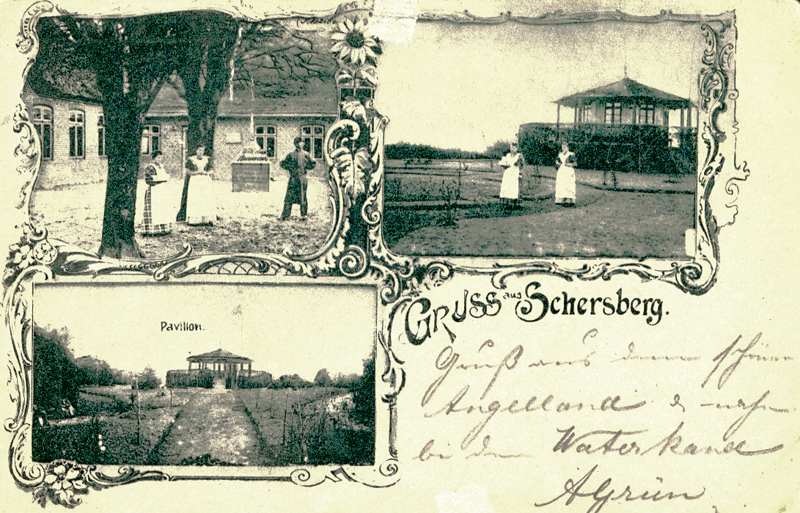 Pavillon.
Gruss aus Schersberg.
Gruß aus dem schönen
Angelland &
bei dem Waterkande
AGrün